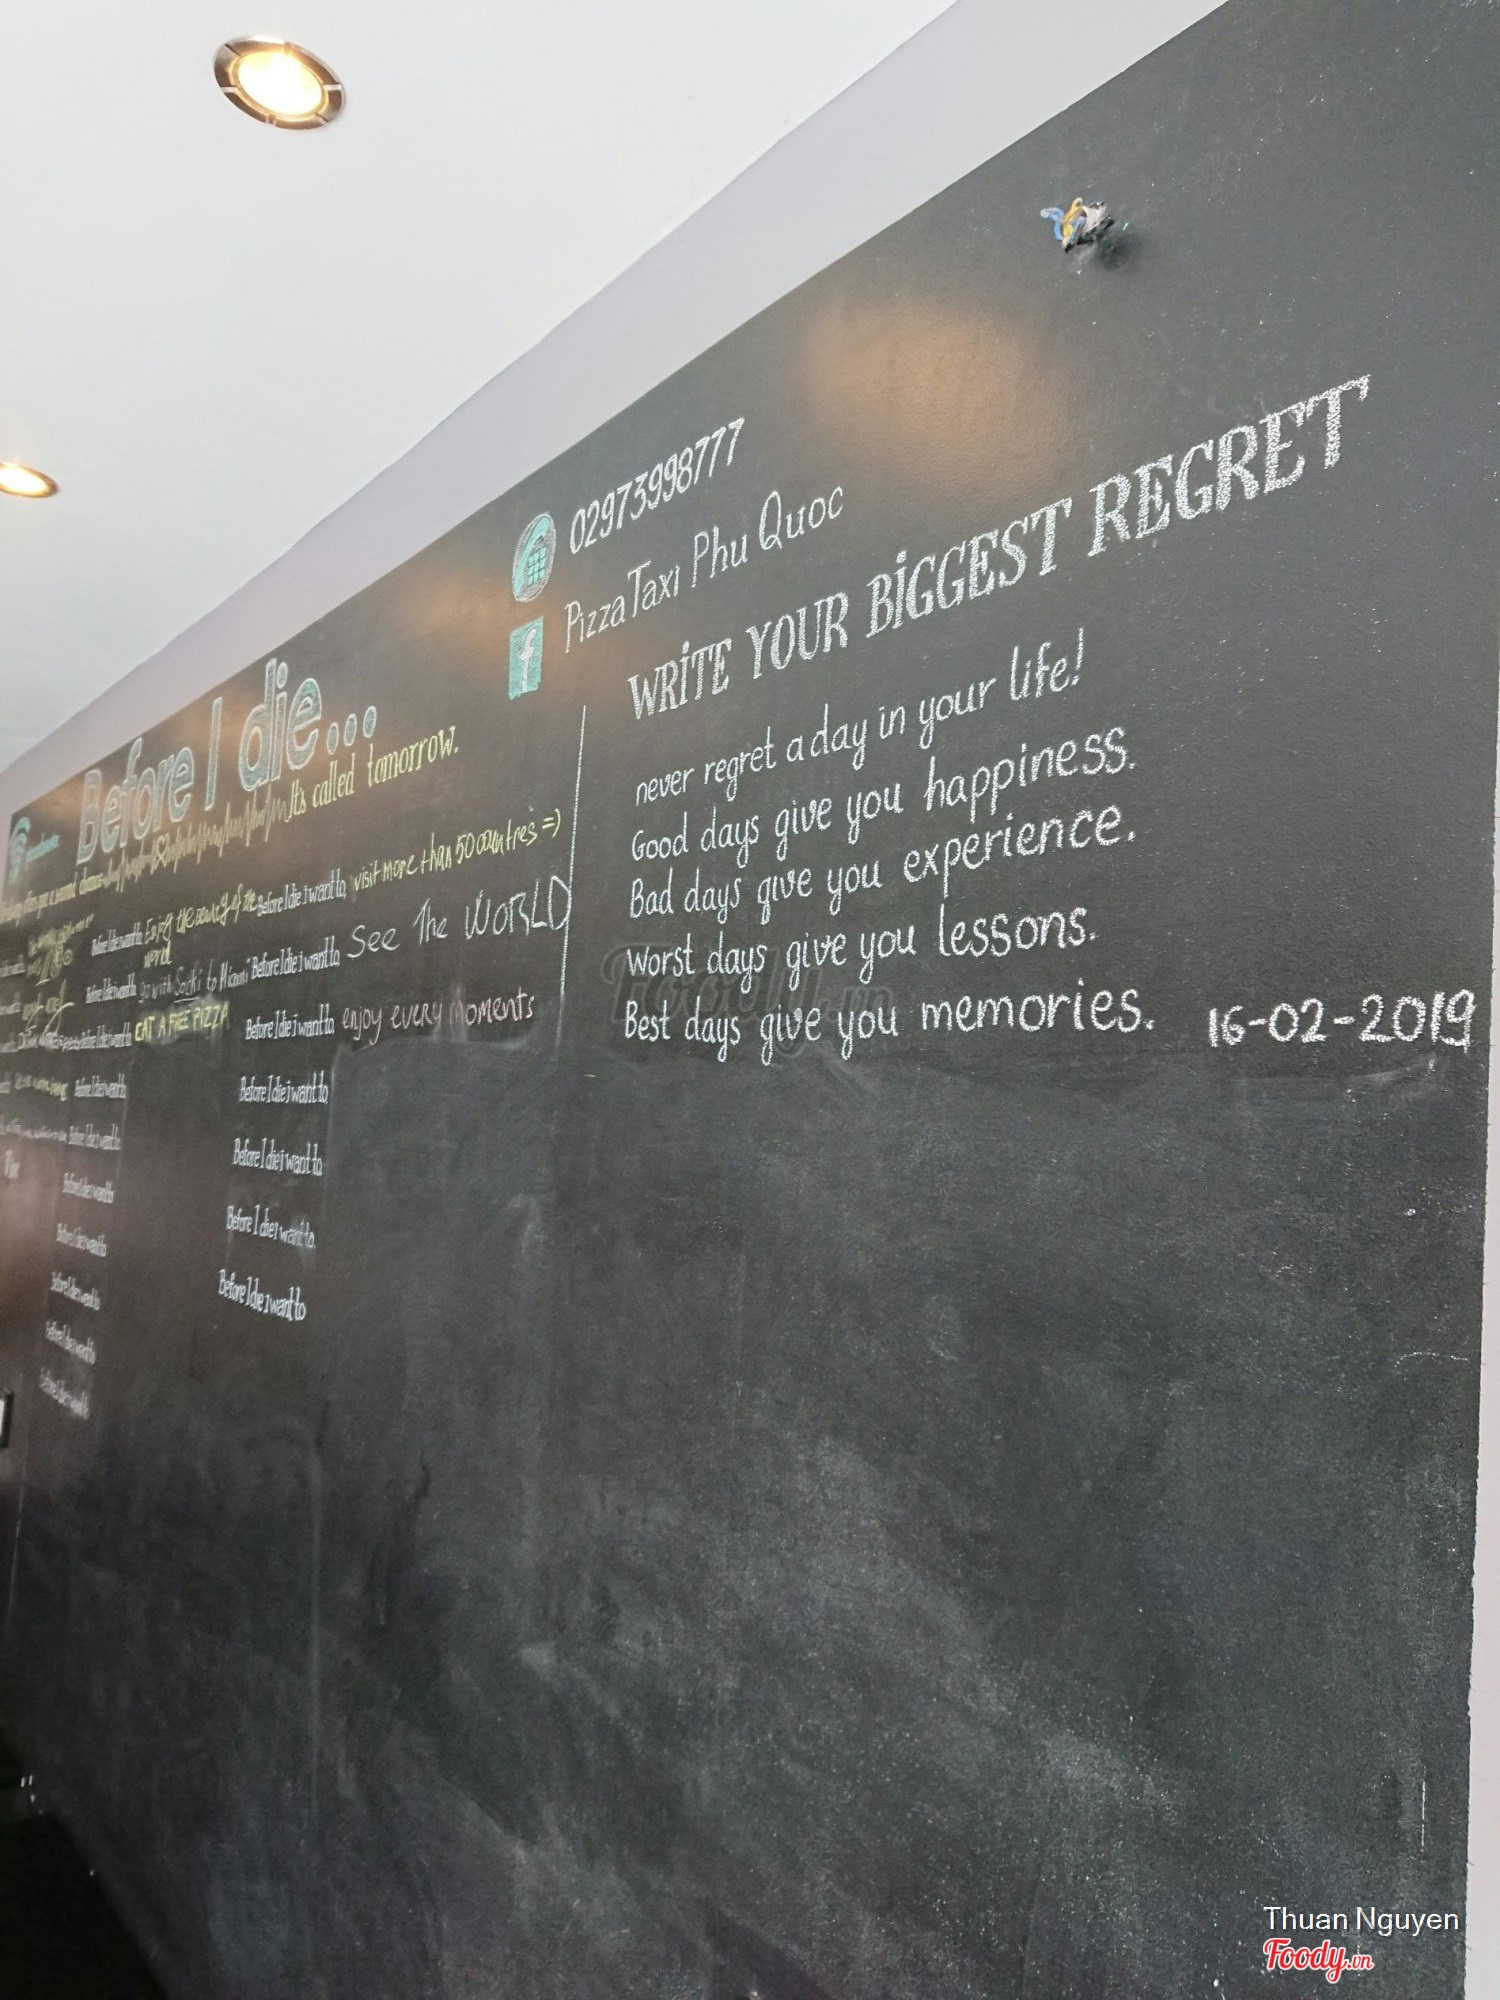 02973998777
Pizza Taxi Phu Quoc
f
WRITE YOUR BIGGEST REGRET
never regret a day in your life!
Good days give you happiness.
Bad days give you experience.
Worst days give you lessons.
Best days give you memories. 16-02-2019
Before I die...
It's called tomorrow.
Before I die i want to Enjoy the beauty of the Before I die i want to visit more than 50 countries =)
Before I die i want to go with to Miami Before I die i want to See The WORLD
Before I die i want to EAT A FREE PIZZA Before I die i want to enjoy every moments
Before I die i want to Before I die i want to
Before I die i want to Before I die i want to
Before I die i want to Before I die i want to
Before I die i want to Before I die i want to
Before I die i want to
Before I die i want to
Before I die i want to
Foody.vn
Thuan Nguyen
Foody.vn